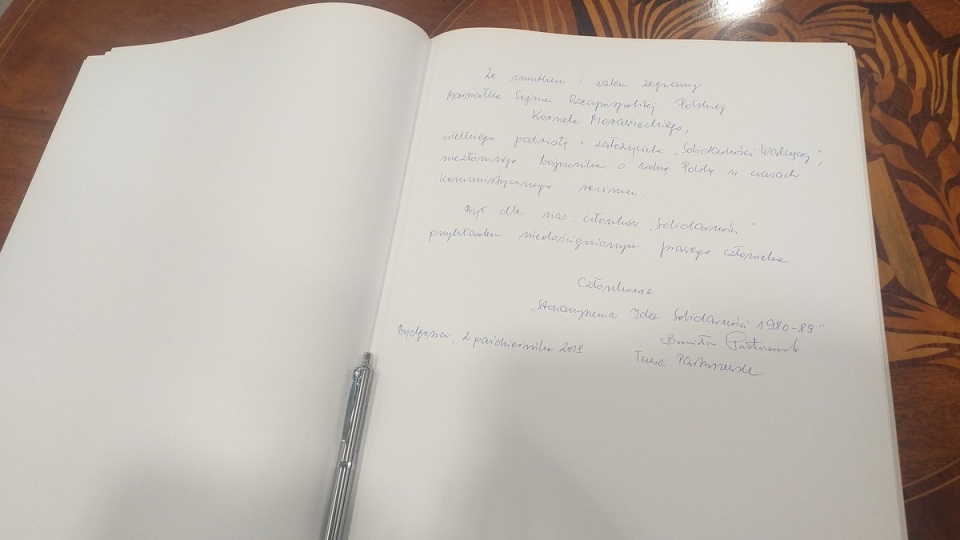 Ze smutkiem i żalem żegnamy
Marszałka Sejmu Rzeczpospolitej Polskiej
Kornela Morawieckiego,
wielkiego patriotę i założyciela „Solidarności Walczącej”,
niezłomnego bojownika o wolną Polskę w czasach
komunistycznego reżimu.
Był dla nas, członków „Solidarności”
przykładem niedoścignionym prawego człowieka.
Członkowie
„Stowarzyszenia Idee Solidarności 1980-89”
Bydgoszcz, 2 października 2019
Teresa